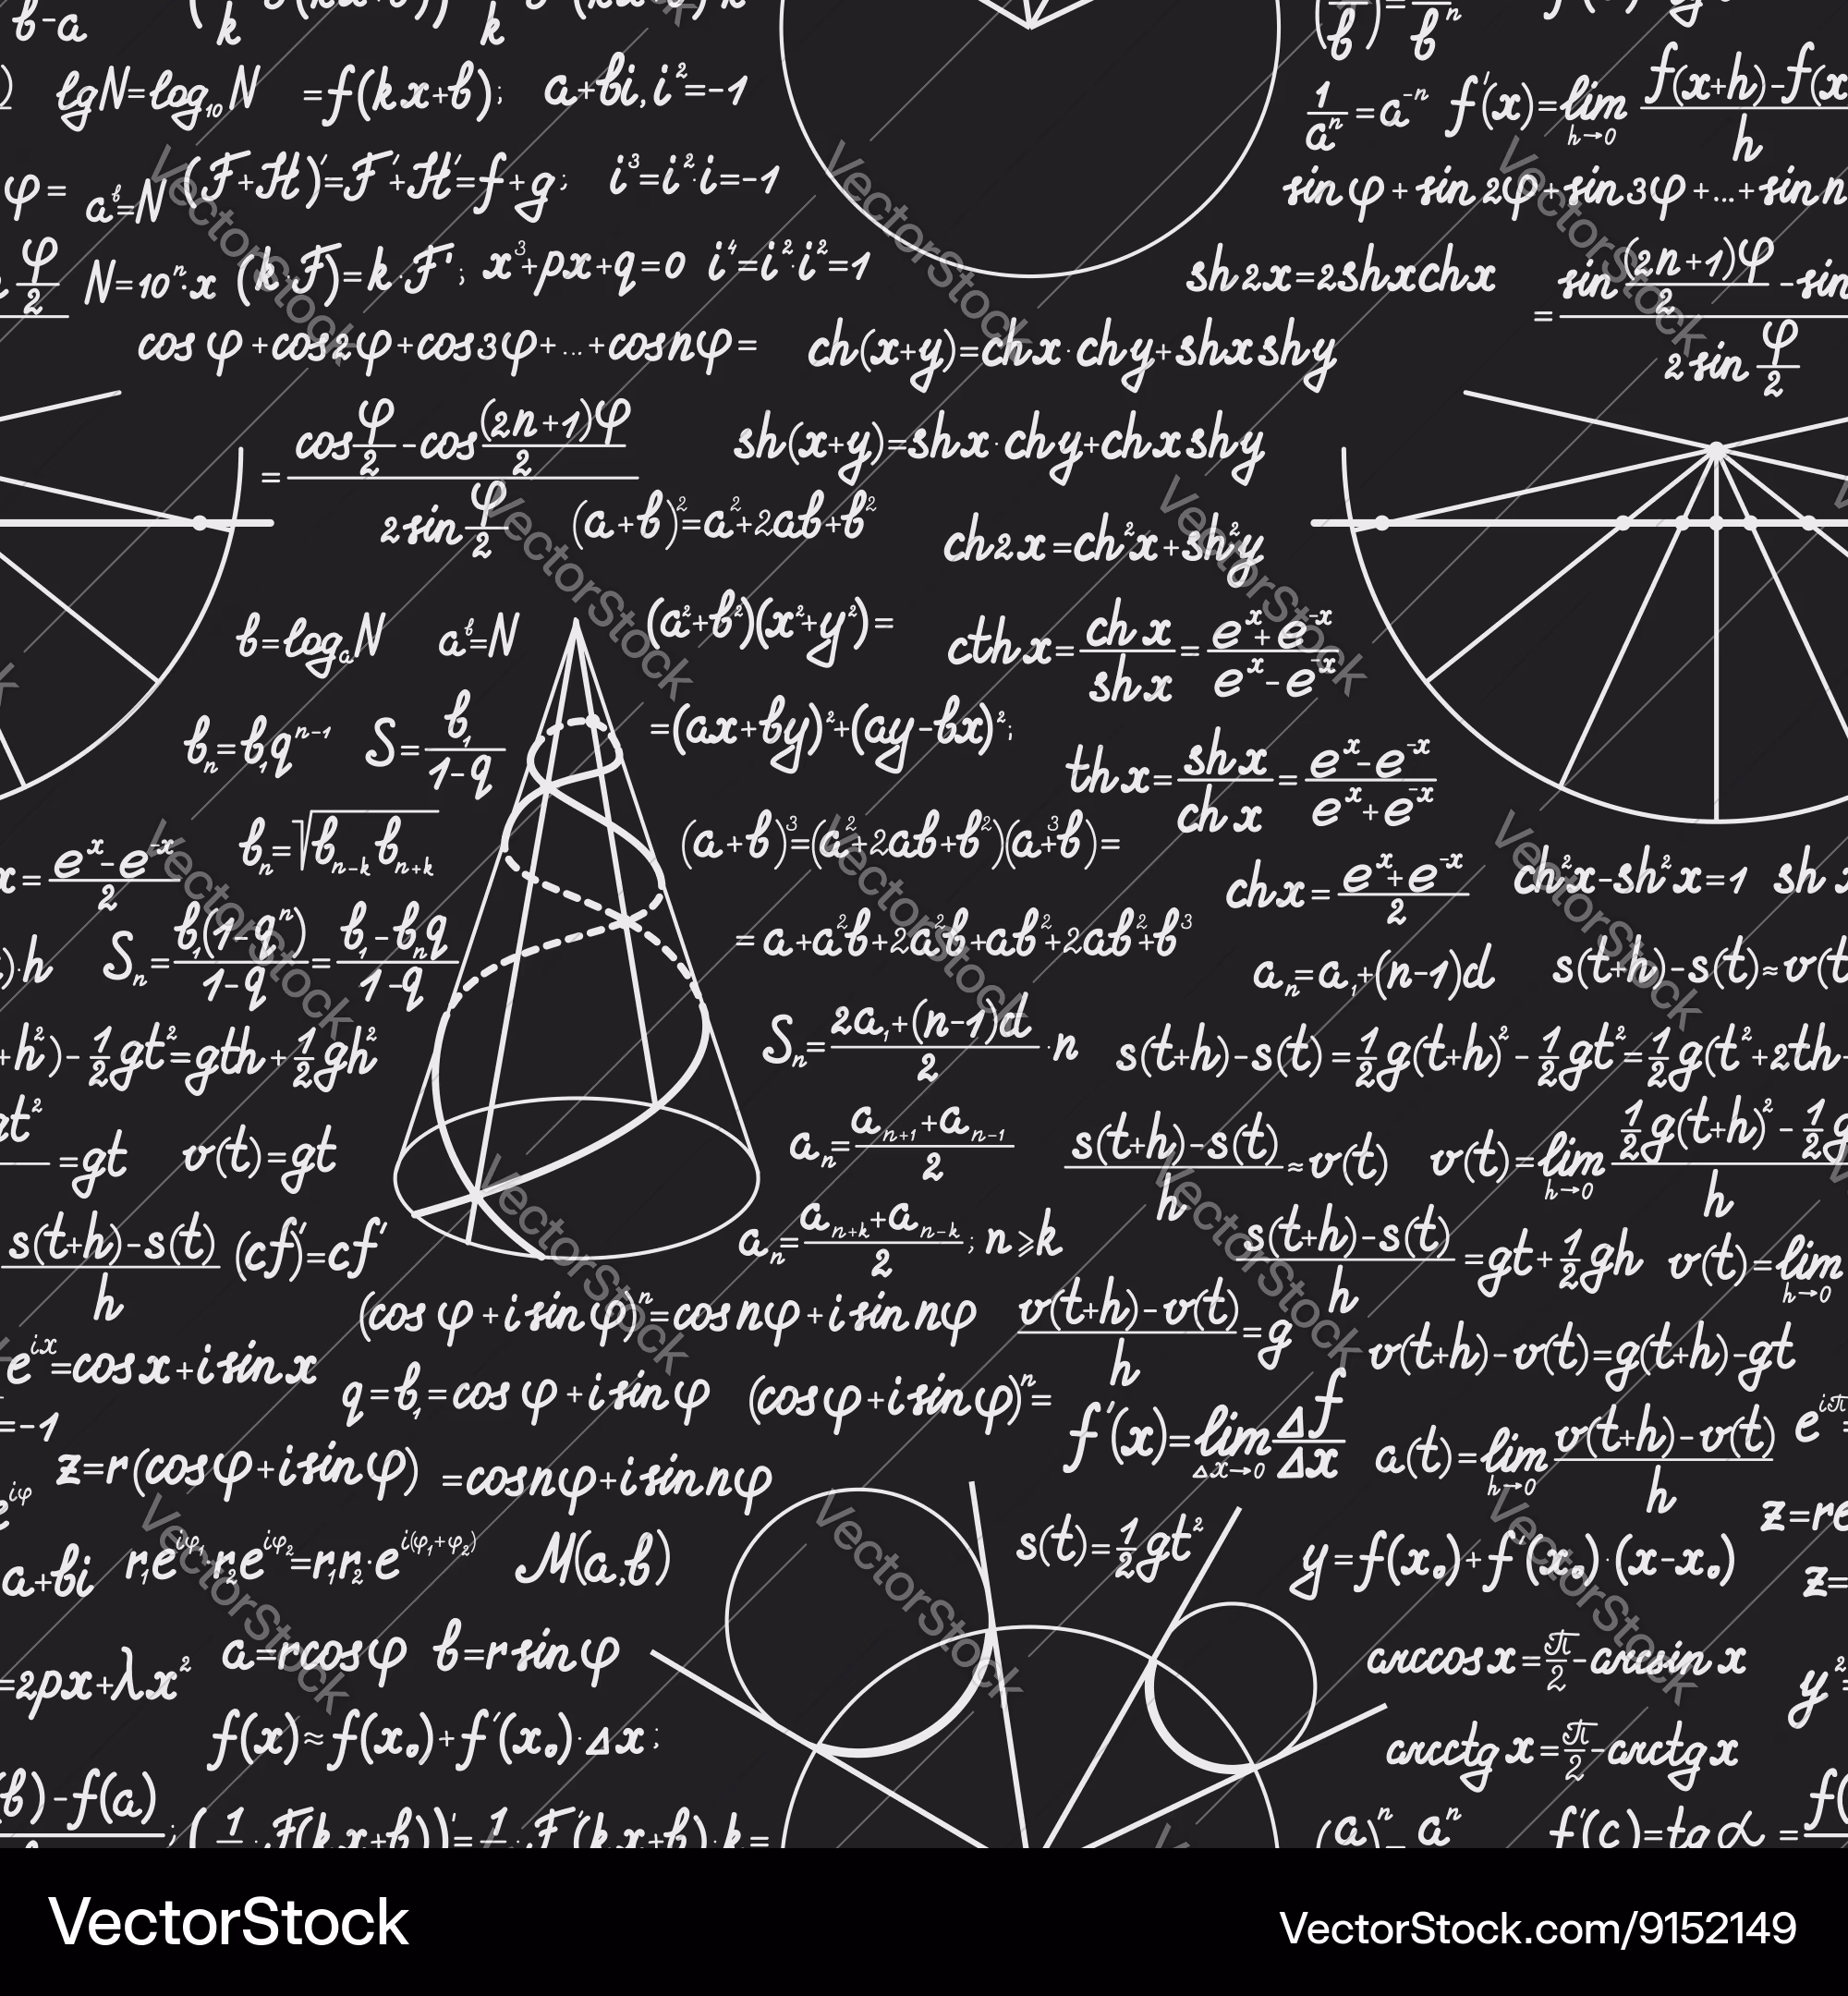 b-a
lgN=log₁₀N =f(kx+b); a+bi, i²=-1
1/aⁿ=a⁻ⁿ f'(x)=lim h→0 f(x+h)-f(x
φ= aᵇ=N (F+H)'=F'+H'=f+g; i³=i²·i=-1
sinφ+sin2φ+sin3φ+...+sinn
φ/2 N=10ⁿ·x (k·F)=k·F'; x³+px+q=0 i⁴=i²·i²=1
sh2x=2shxchx
= sin (2n+1)φ/2 -sin
2sin φ/2
cosφ+cos2φ+cos3φ+...+cosnφ=
ch(x+y)=chx·chy+shxshy
= (cos φ/2 -cos (2n+1)φ/2) / (2sin φ/2)
sh(x+y)=shx·chy+chxshy
(a+b)²=a²+2ab+b²
ch2x=ch²x+sh²y
b=logₐN aᵇ=N
(a²+b²)(x²+y²)=
cthx= chx/shx = (eˣ+e⁻ˣ)/(eˣ-e⁻ˣ)
bₙ=b₁qⁿ⁻¹ S= b₁/(1-q)
=(ax+by)²+(ay-bx)²;
thx= shx/chx = (eˣ-e⁻ˣ)/(eˣ+e⁻ˣ)
x= (eˣ-e⁻ˣ)/2
bₙ=√(bₙ₋ₖ bₙ₊ₖ)
(a+b)³=(a²+2ab+b²)(a+³b)=
chx= (eˣ+e⁻ˣ)/2
ch²x-sh²x=1 sh
)·h Sₙ= b₁(1-qⁿ)/(1-q) = (b₁-bₙq)/(1-q)
=a+a²b+2a²b+ab²+2ab²+b³
aₙ=a₁+(n-1)d
s(t+h)-s(t)≈v(t
+h²)-½gt²=gth+½gh²
Sₙ= (2a₁+(n-1)d)/2 ·n
s(t+h)-s(t)=½g(t+h)²-½gt²=½g(t²+2th
t² =gt v(t)=gt
aₙ= (aₙ₊₁+aₙ₋₁)/2
(s(t+h)-s(t))/h ≈v(t)
v(t)=lim h→0 ½g(t+h)²-½g / h
(s(t+h)-s(t))/h (cf)'=cf'
aₙ= (aₙ₊ₖ+aₙ₋ₖ)/2 ; n⩾k
(s(t+h)-s(t))/h =gt+½gh
v(t)=lim h→0
(cosφ+isinφ)ⁿ=cosnφ+isinnφ
(v(t+h)-v(t))/h =g
v(t+h)-v(t)=g(t+h)-gt
eⁱˣ=cosx+isinx
q=b₁=cosφ+isinφ
(cosφ+isinφ)ⁿ=
=-1
f'(x)=lim Δx→0 Δf/Δx
a(t)=lim h→0 (v(t+h)-v(t))/h
z=r(cosφ+isinφ)
=cosnφ+isinnφ
z=re
a+bi r₁e^iφ₁·r₂e^iφ₂=r₁r₂·e^i(φ₁+φ₂)
M(a,b)
s(t)=½gt²
y=f(x₀)+f'(x₀)·(x-x₀)
z=
=2px+λx² a=rcosφ b=rsinφ
arccosx=π/2-arcsinx
f(x)≈f(x₀)+f'(x₀)·Δx;
arcctgx=π/2-arctgx
b)-f(a) ; (1 ·F(kx+b))'=1 ·F'(kx+b)·k=
(a)ⁿ=aⁿ
f'(c)=tgα=
VectorStock
VectorStock.com/9152149